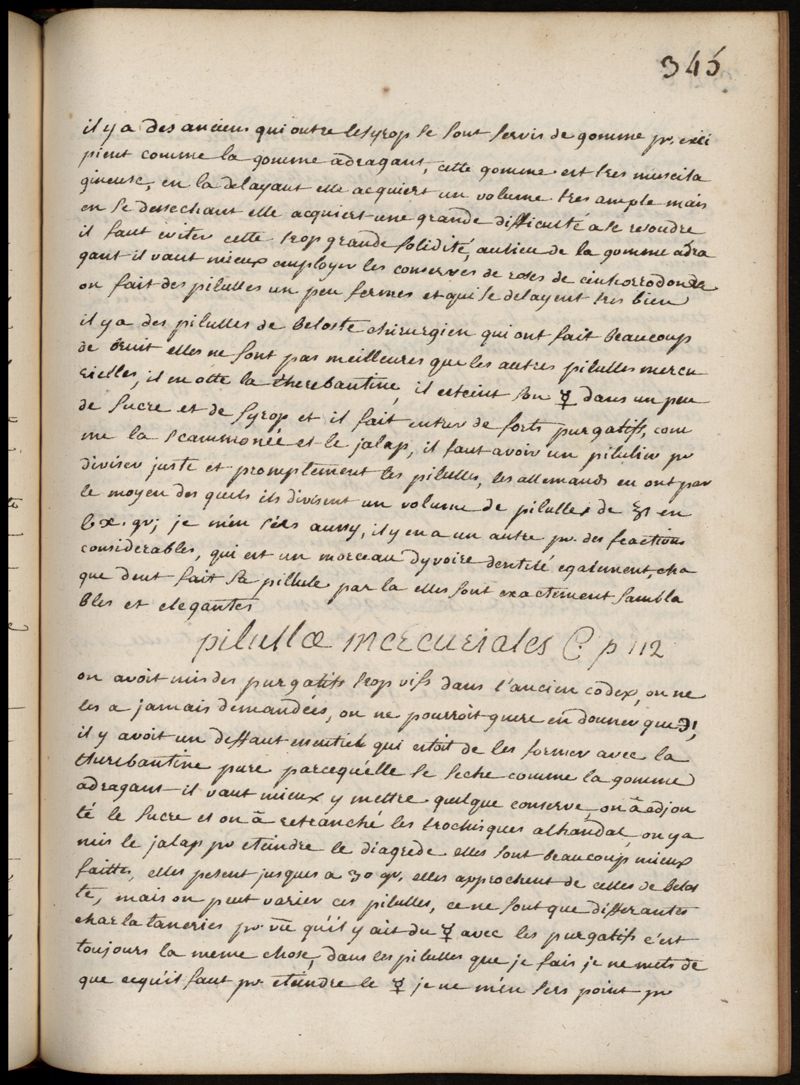 345
il y a des anciens qui outre le syrop se sont servis de gomme pr. exci
pient comme la gomme adragant, cette gomme est tres muscila
gineuse, en la delayant elle acquiert un volume tres ample mais
en se dessechant elle acquiert une grande difficulté a se resoudre
il faut eviter cette trop grande solidité, aulieu de la gomme adra
gant il vaut mieux employer les conserves de roses de cinhorrodon
on fait des pilulles un peu fermes et qui se delayent tres bien
il y a des pilulles de beloste chirurgien qui ont fait beaucoup
de bruit elles ne sont pas meilleures que les autres pilulles mercu
rielles, il en otte la therebantine, il esteint son ☿ dans un peu
de sucre et de syrop et il fait entrer de forts purgatifs, com
me la scammonée et le jalap, il faut avoir un pilulier pr
diviser juste et promptement les pilulles, les allemands en ont par
le moyen des quels ils divisent un volume de pilulles de ʒi en
gr; je m'en sers aussy, il y en a un autre pr. des fractions
considerables, qui est un morceau d'yvoire dentelé egalement, cha
que dent fait sa pillule par la elles sont exactement sembla
bles et elegantes
pilullæ mercuriales C. p 112
on avoit mis des purgatifs trop vifs dans l'ancien codex, on ne
les a jamais demandées, on ne pourroit guere en donner que ℈i,
il y avoit un deffaut essentiel qui estoit de les former avec la
therebantine pure parcequ'elle se seche comme la gomme
adragant il vaut mieux y mettre quelque conserve, on â adjou
té le sucre et on â retranché les trochisques alhandal, on y a
mis le jalap pr eteindre le diagrede elles sont beaucoup mieux
faittes, elles pesent jusques a 30 gr. elles approchent de celles de belos
te, mais on peut varier ces pilulles, ce ne sont que differantes
charlataneries pr. vû qu'il y ait du ☿ avec les purgatifs c'est
toujours la meme chose, dans les pilulles que je fais je ne mets de
que ce qu'il faut pr eteindre le ☿ je ne m'en sers point pr